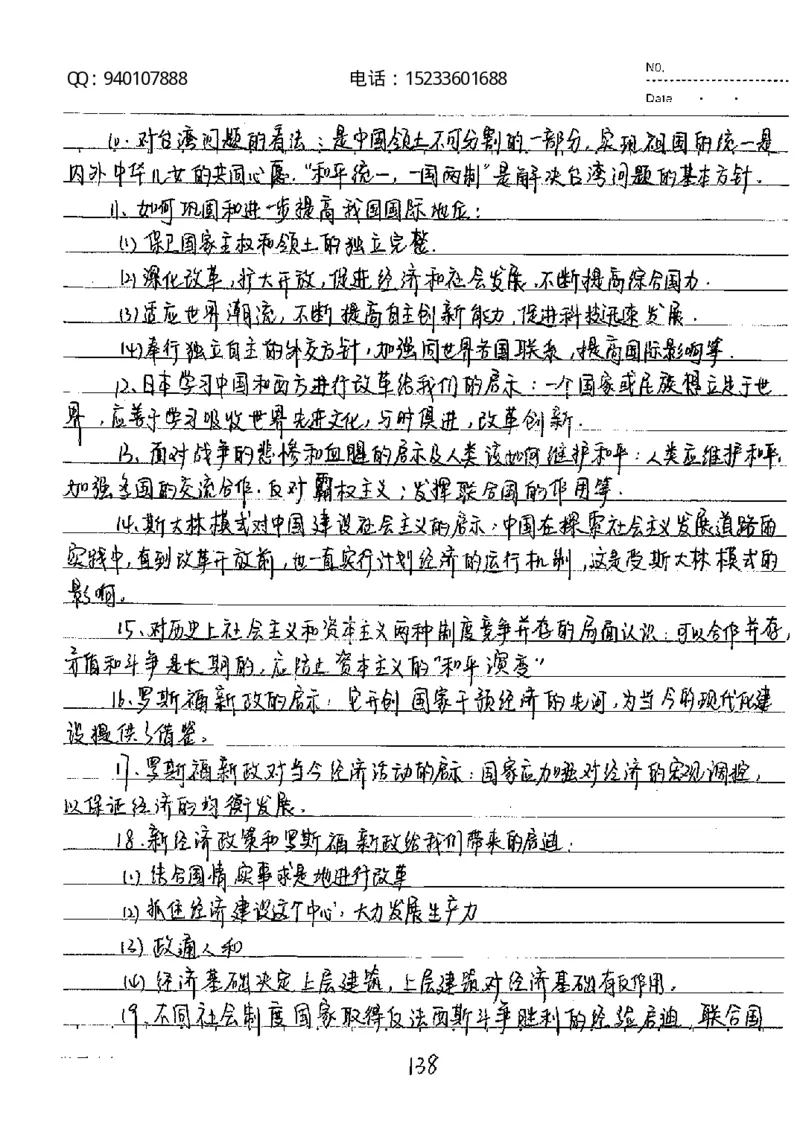 QQ：940107888 电话：15233601688 NO.
Date
10. 对台湾问题的看法：是中国领土不可分割的一部分，实现祖国的统一是
内外中华儿女的共同心愿，“和平统一，一国两制”是解决台湾问题的基本方针。
11、如何巩固和进一步提高我国国际地位：
(1) 保卫国家主权和领土的独立完整.
(2) 深化改革，扩大开放，促进经济和社会发展，不断提高综合国力.
(3) 适应世界潮流，不断提高自主创新能力，促进科技迅速发展.
(4) 奉行独立自主的外交方针，加强同世界各国联系，提高国际影响等.
12、日本学习中国和西方进行改革给我们的启示：一个国家或民族得立足于世
界，应善于学习吸收世界先进文化，与时俱进，改革创新.
13、面对战争的悲惨和血腥的启示及人类该如何维护和平：人类应维护和平，
加强各国的交流合作，反对霸权主义；发挥联合国的作用等.
14、斯大林模式对中国建设社会主义的启示：中国在探索社会主义发展道路的
实践中，直到改革开放前，也一直实行计划经济的运行机制，这是受斯大林模式的
影响。
15、对历史上社会主义和资本主义两种制度竞争并存的局面认识：可以合作并存，
矛盾和斗争是长期的，应防止资本主义的“和平演变”
16、罗斯福新政的启示：它开创国家干预经济的先河，为当今的现代化建
设提供了借鉴。
17、罗斯福新政对当今经济活动的启示：国家应加强对经济的宏观调控，
以保证经济的均衡发展.
18、新经济政策和罗斯福新政给我们带来的启迪：
(1) 结合国情实事求是地进行改革
(2) 抓住经济建设这个中心，大力发展生产力
(3) 政通人和
(4) 经济基础决定上层建筑，上层建筑对经济基础有反作用。
19、不同社会制度国家取得反法西斯斗争胜利的经验启迪，联合国
138